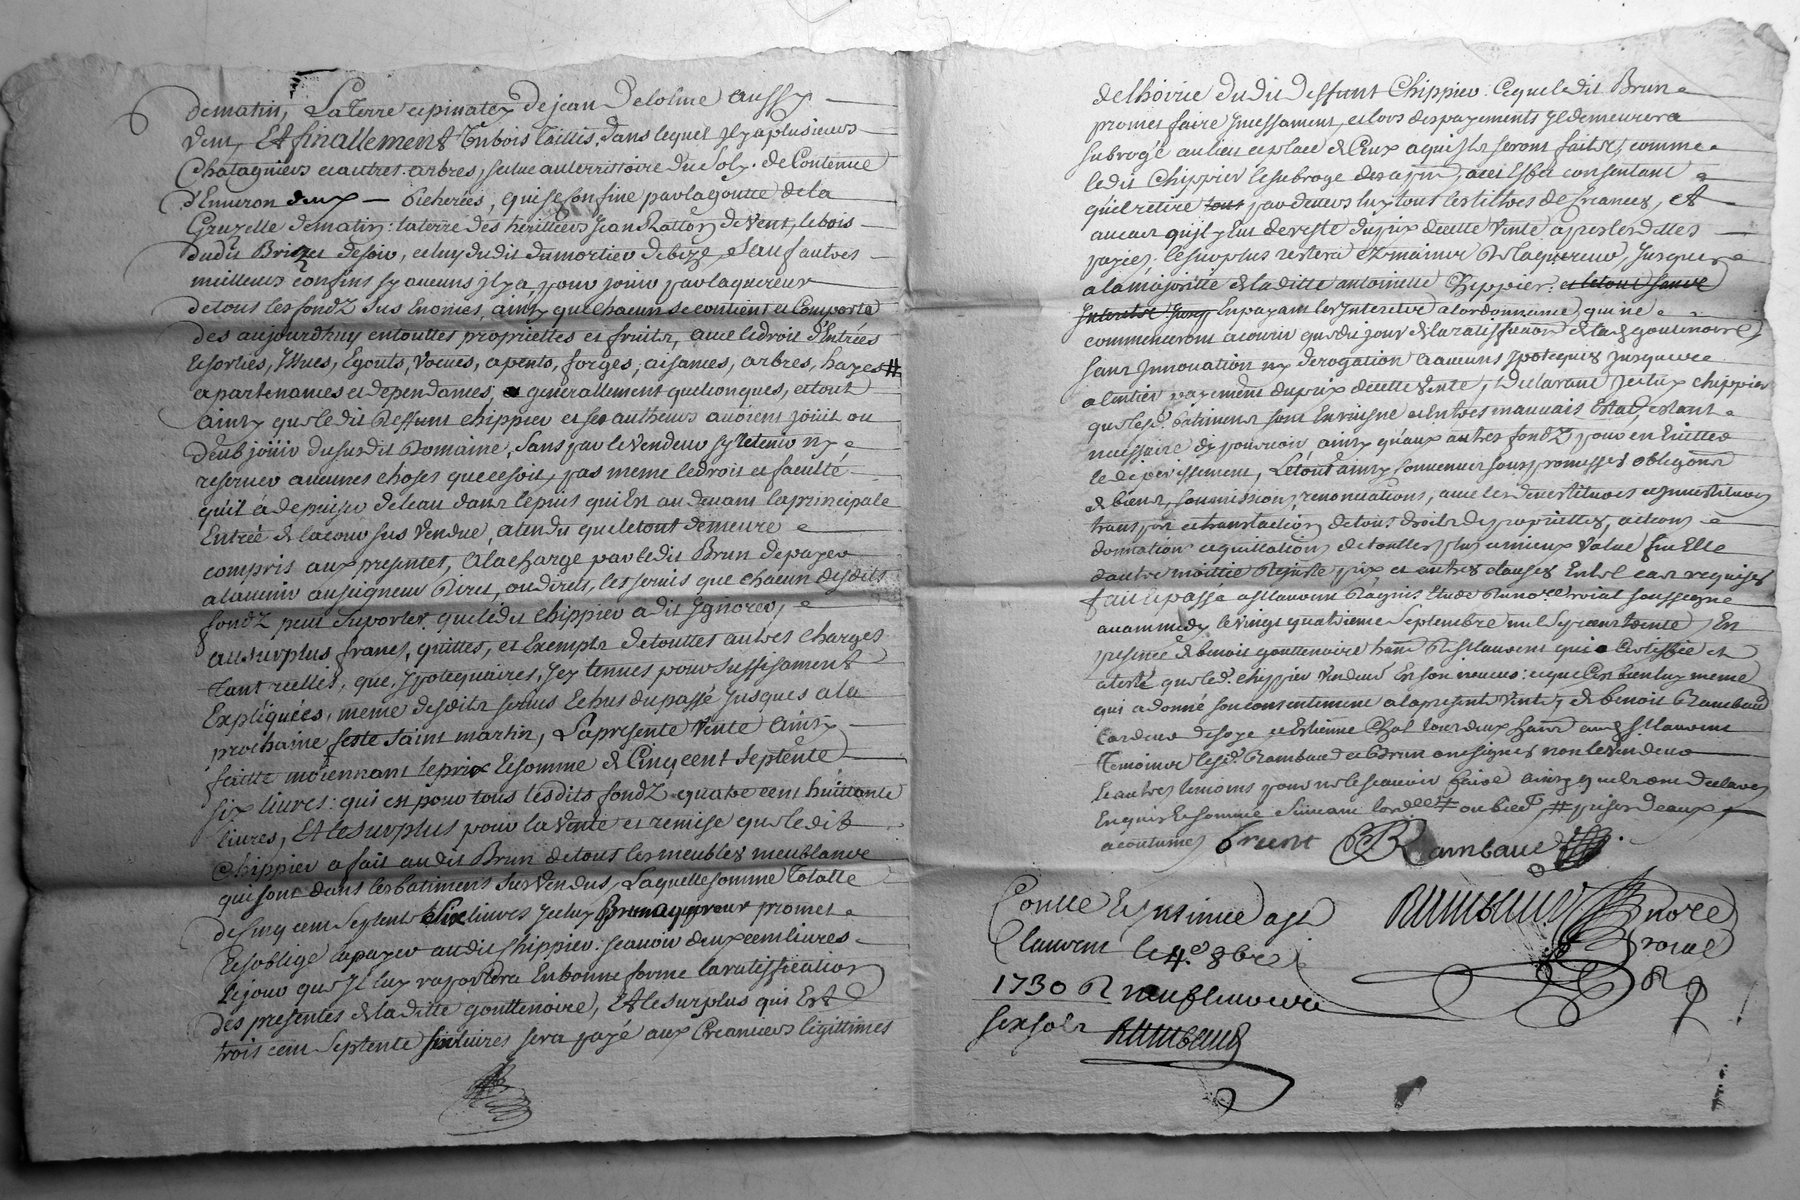 de matin, La Terre et pinatey de jean Delolme aussy
vent, Et finallement Un bois taillis, dans lequel Il y a plusieurs
Chataigniers et autres arbres, scitue au territoire du Sol, de Contenue
d'Environ deux — bicherées, qui se confine par la goutte de la
Gruzelle de matin: la terre des heritiers Jean Ratton de vent, le bois
dudit Brizet de soir, celuy dudit dumortier de bize, Sauf autres
meilleurs confins sy aucuns Il y a pour jouir par laquereur
de tous les fondz sus Enoncés, ainsy que chacun se contient et Comporte
des aujourdhuy en touttes proprietes et fruits, avec le droit d'Entrées
et sorties, Issues, Egouts, voeues, apents, forges, aisances, arbres, hayes #
apartenances et dependances, generallement quelconques, et tout
ainsy que ledit deffunt chippier et ses autheurs avoient jouit ou
deub jouir du susdit Domaine, sans par le vendeur sy retenir ny
reserver aucunes choses que ce soit, pas meme le droit et faculté
qu'il à de puiser de leau dans le puis qui Est au devant la principale
Entrée de la cour sus vendue, atendu que le tout demeure
compris aux presentes, a la charge par ledit Brun de payer
a lavenir au seigneur direct, ou directs, les servis que chacun desdits
fondz peut suporter que ledit chippier a dit Ignorer,
au surplus francs, quittes, et Exempts de touttes autres charges
tant reelles, que Ipotequaires, Icy tenues pour suffisament
Expliquées, meme desdits servis Echus du passé jusques a la
prochaine feste saint martin, La presente vente ainsy
faitte moiennant le prix et somme de Cinq cent septente
six livres: qui est pour tous lesdits fondz quatre cent huittante
livres, Et le surplus pour la vente et remise que ledit
Chippier a fait audit Brun de tous les meubles meublants
qui sont dans les batiments sus vendus, Laquelle somme totalle
de Cinq cent Septente Six livres Iceluy Brun aquereur promet
et soblige a payer audit chippier: scavoir deux cent livres
le jour que Il luy raportera En bonne forme la ratiffication
des presentes de laditte gouttenoire, Et le surplus qui Est
trois cent Septente six livres sera payé aux Creanciers legittimes
de lhoirie dudit deffunt Chippier. Ce que ledit Brun
promet faire Incessament, et lors des payements Il demeurera
subrogé au lieu et place de Ceux a qui Ils seront faits, comme
ledit Chippier le subroge des a present, consentant
quil retire par devers luy tous les tiltres de Creances, et
au cas qu'il y Eut de reste du prix de cette vente apres les dettes
payées: le surplus restera Es mains de laquereur, jusques
a la majoritté de laditte antoinette Chippier.
En payant les Interets a lordonnance, qui ne
commenceront a courir que du jour de la ratiffication de lad gouttenoire,
sans Innovation ny derogation a aucuns Ipoteques jusques
a lentier payement du prix de cette vente, Declarant Iceluy chippier
que lesd. batiments sont En ruisne et en tres mauvais Estat, estant
necessaire dy pourvoir ainsy qu'aux autres fondz pour en Eviter
le deperissement, Le tout ainsy convenu sous promesses obligons
de biens, soumissions, renonciations, avec les devestitures et Investitures
transport et translation de tous droits de proprietes, actions
donnation et quittation de touttes plus et mieux value fut Elle
dautre moittié de juste prix, et autres clauses En tel cas requises
fait et passé a St laurent dagnis Etude du nore. roial soussigné
avant midy le vingt quatrieme septembre mil sept cent trente, En
presence de benoit gouttenoire habt. de St laurent qui a Certiffié et
atesté que led. chippier vendeur En son nom: et que C'est bien luy meme
qui a donné son consentement a la present vente, de benoit Rambaud
Cardeur de soye et Estienne Chol tous deux habts. aud St laurent
Temoins lesd. Rambaud et Brun ont signé non le vendeur
les autres temoins pour ne le scavoir faire ainsy quils ont declaré
Enquis et sommé # ou biect # puiser deaux
acoutumé brunt Rambaud
Conlle Et insinué a St
Laurent le 4e. 8bre
1730 R neuf livres
six sols Rambaud
Rambaud nore
roial